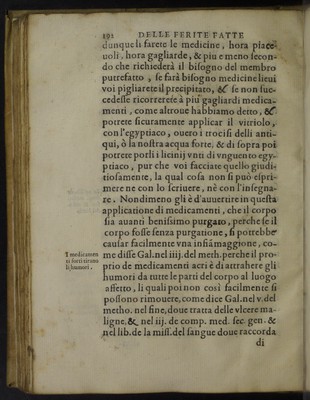 192 DELLE FERITE FATTE
dunque li farete le medicine, hora piace-
uoli, hora gagliarde, & piu e meno secon-
do che richiederà il bisogno del membro
putrefatto, se farà bisogno medicine lieui
voi pigliarete il precipitato, & se non suc-
cedesse ricorrerete à piu gagliardi medica-
menti, come altroue habbiamo detto, &
potrete sicuramente applicar il vitriolo,
con l'egyptiaco, ouero i trocisi delli anti-
qui, ò la nostra acqua forte, & di sopra poi
potrete porli i licinij vnti di vnguento egy-
ptiaco, pur che voi facciate quello giudi-
tiosamente, la qual cosa non si può espri-
mere ne con lo scriuere, nè con l'insegna-
re. Nondimeno gli è d'auuertire in questa
applicatione di medicamenti, che il corpo
sia auanti benissimo purgato, perche se il
corpo fosse senza purgatione, si potrebbe
causar facilmente vna infiāmaggione, co-
me disse Gal. nel iiij. del meth. perche il pro-
prio de medicamenti acri è di attrahere gli
humori da tutte le parti del corpo al luogo
affetto, li quali poi non così facilmente si
possono rimouere, come dice Gal. nel v. del
metho. nel fine, doue tratta delle vlcere ma-
ligne. & nel iij. de comp. med. sec. gen. &
nel lib. de la miss. del sangue doue raccorda
di
I medicamen
ti forti tirano
li humori.